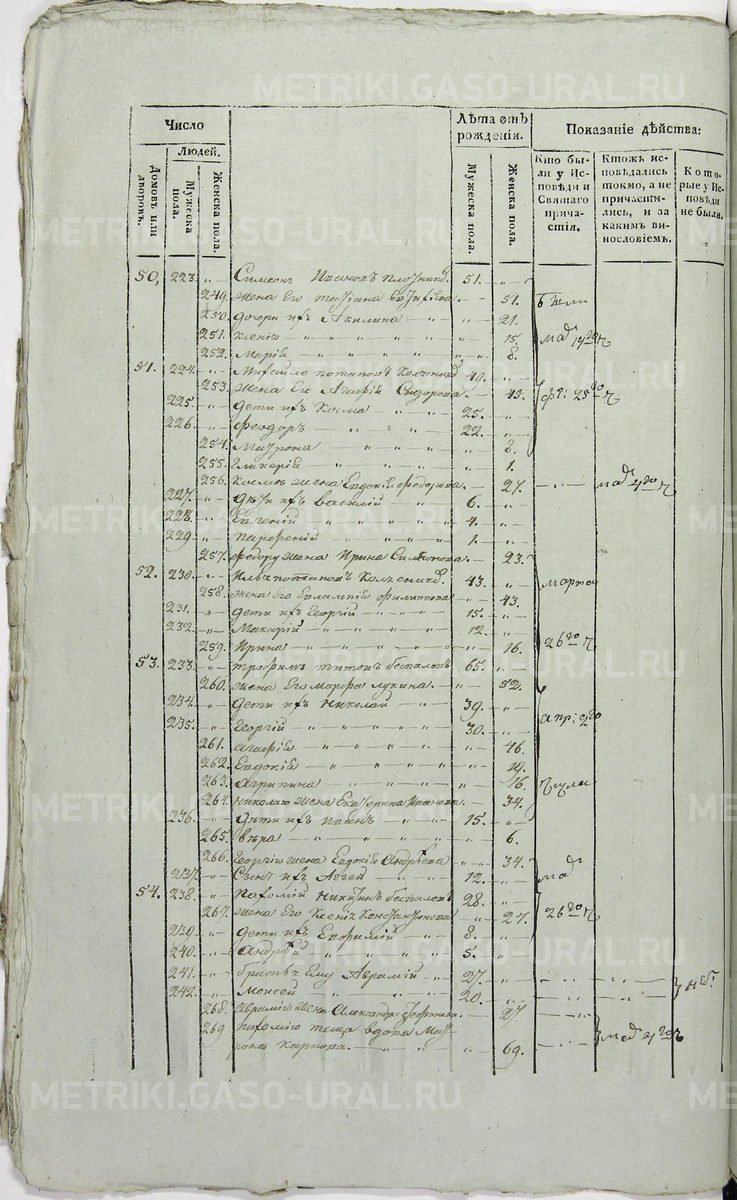 METRIKI.GASO-URAL.RU
Число
Людей.
Домовъ или дворовъ.
Мужеска пола.
Женска пола.
Лѣта отъ рожденія.
Мужеска пола.
Женска пола.
Показаніе дѣйства:
Кто бы-
ли у Ис-
повѣди и
Святаго
прича-
стія.
Ктожъ ис-
повѣдались
токмо, а не
причасти-
лись, и за
какимъ ви-
нословіемъ.
Кото-
рые у Ис-
повѣди
не были.
50, 223. „ Симеонъ Ивановъ 51. „
249. жена Его Татіана 51.
250. дочери ихъ Акилина „ „ 21.
251. Ксенія „ 15.
252. Марія „ 8.
51. 224. „ Михайло Потаповъ 49. „
253. жена Его Агафія Сидорова 45.
225. „ дети ихъ Косма „ 25. „
226. „ Феодоръ „ 22. „
254. Матрона „ 8.
255. Гликерія „ 1.
256. Космы жена Евдокія Федорова 27.
227. „ дѣти ихъ Василій 6. „
228. „ Евгеній „ 4. „
229 „ Парфеній „ 1. „
257. Федору жена Ирина 23.
52. 230. „ 43. „ марта
258. жена Его Евлампія Филиппова „ 43.
231. „ дети ихъ Георгій „ 15. „
232. „ Макарій „ 12. „
259. Ирина „ 16.
53. 233. „ Трофимъ Титовъ Беспаловъ 65. „
260. жена Его Марфа Лукина „ 52.
234. „ дети ихъ Николай „ 39. „
235. „ Георгій „ 30. „
261. Агафія „
262. Евдокія „ 19.
263. Агрипина „ 16.
264. Николаю жена Екатерина Иванова 34.
236. „ дѣти ихъ Иванъ „ 15. „
265. Вѣра „ 6.
266. Георгію жена Евдокія Андрѣева „ 34.
237. „ Сынъ ихъ Аггей „ 12. „
54. 238. „ Пафомій Никитинъ Беспаловъ 28. „
267. жена Его Ксенія Константинова „ 27.
239. „ дети ихъ Евфимій „ 8. „
240. „ Андрѣй „ 5. „
241. „ братья Ему Аврамій „ 27. „
242. „ Моисей „ 20. „
268. Аврамію жена Александра 27.
269 Пафомію теща вдова Мат-
рона Карпова „ 69.